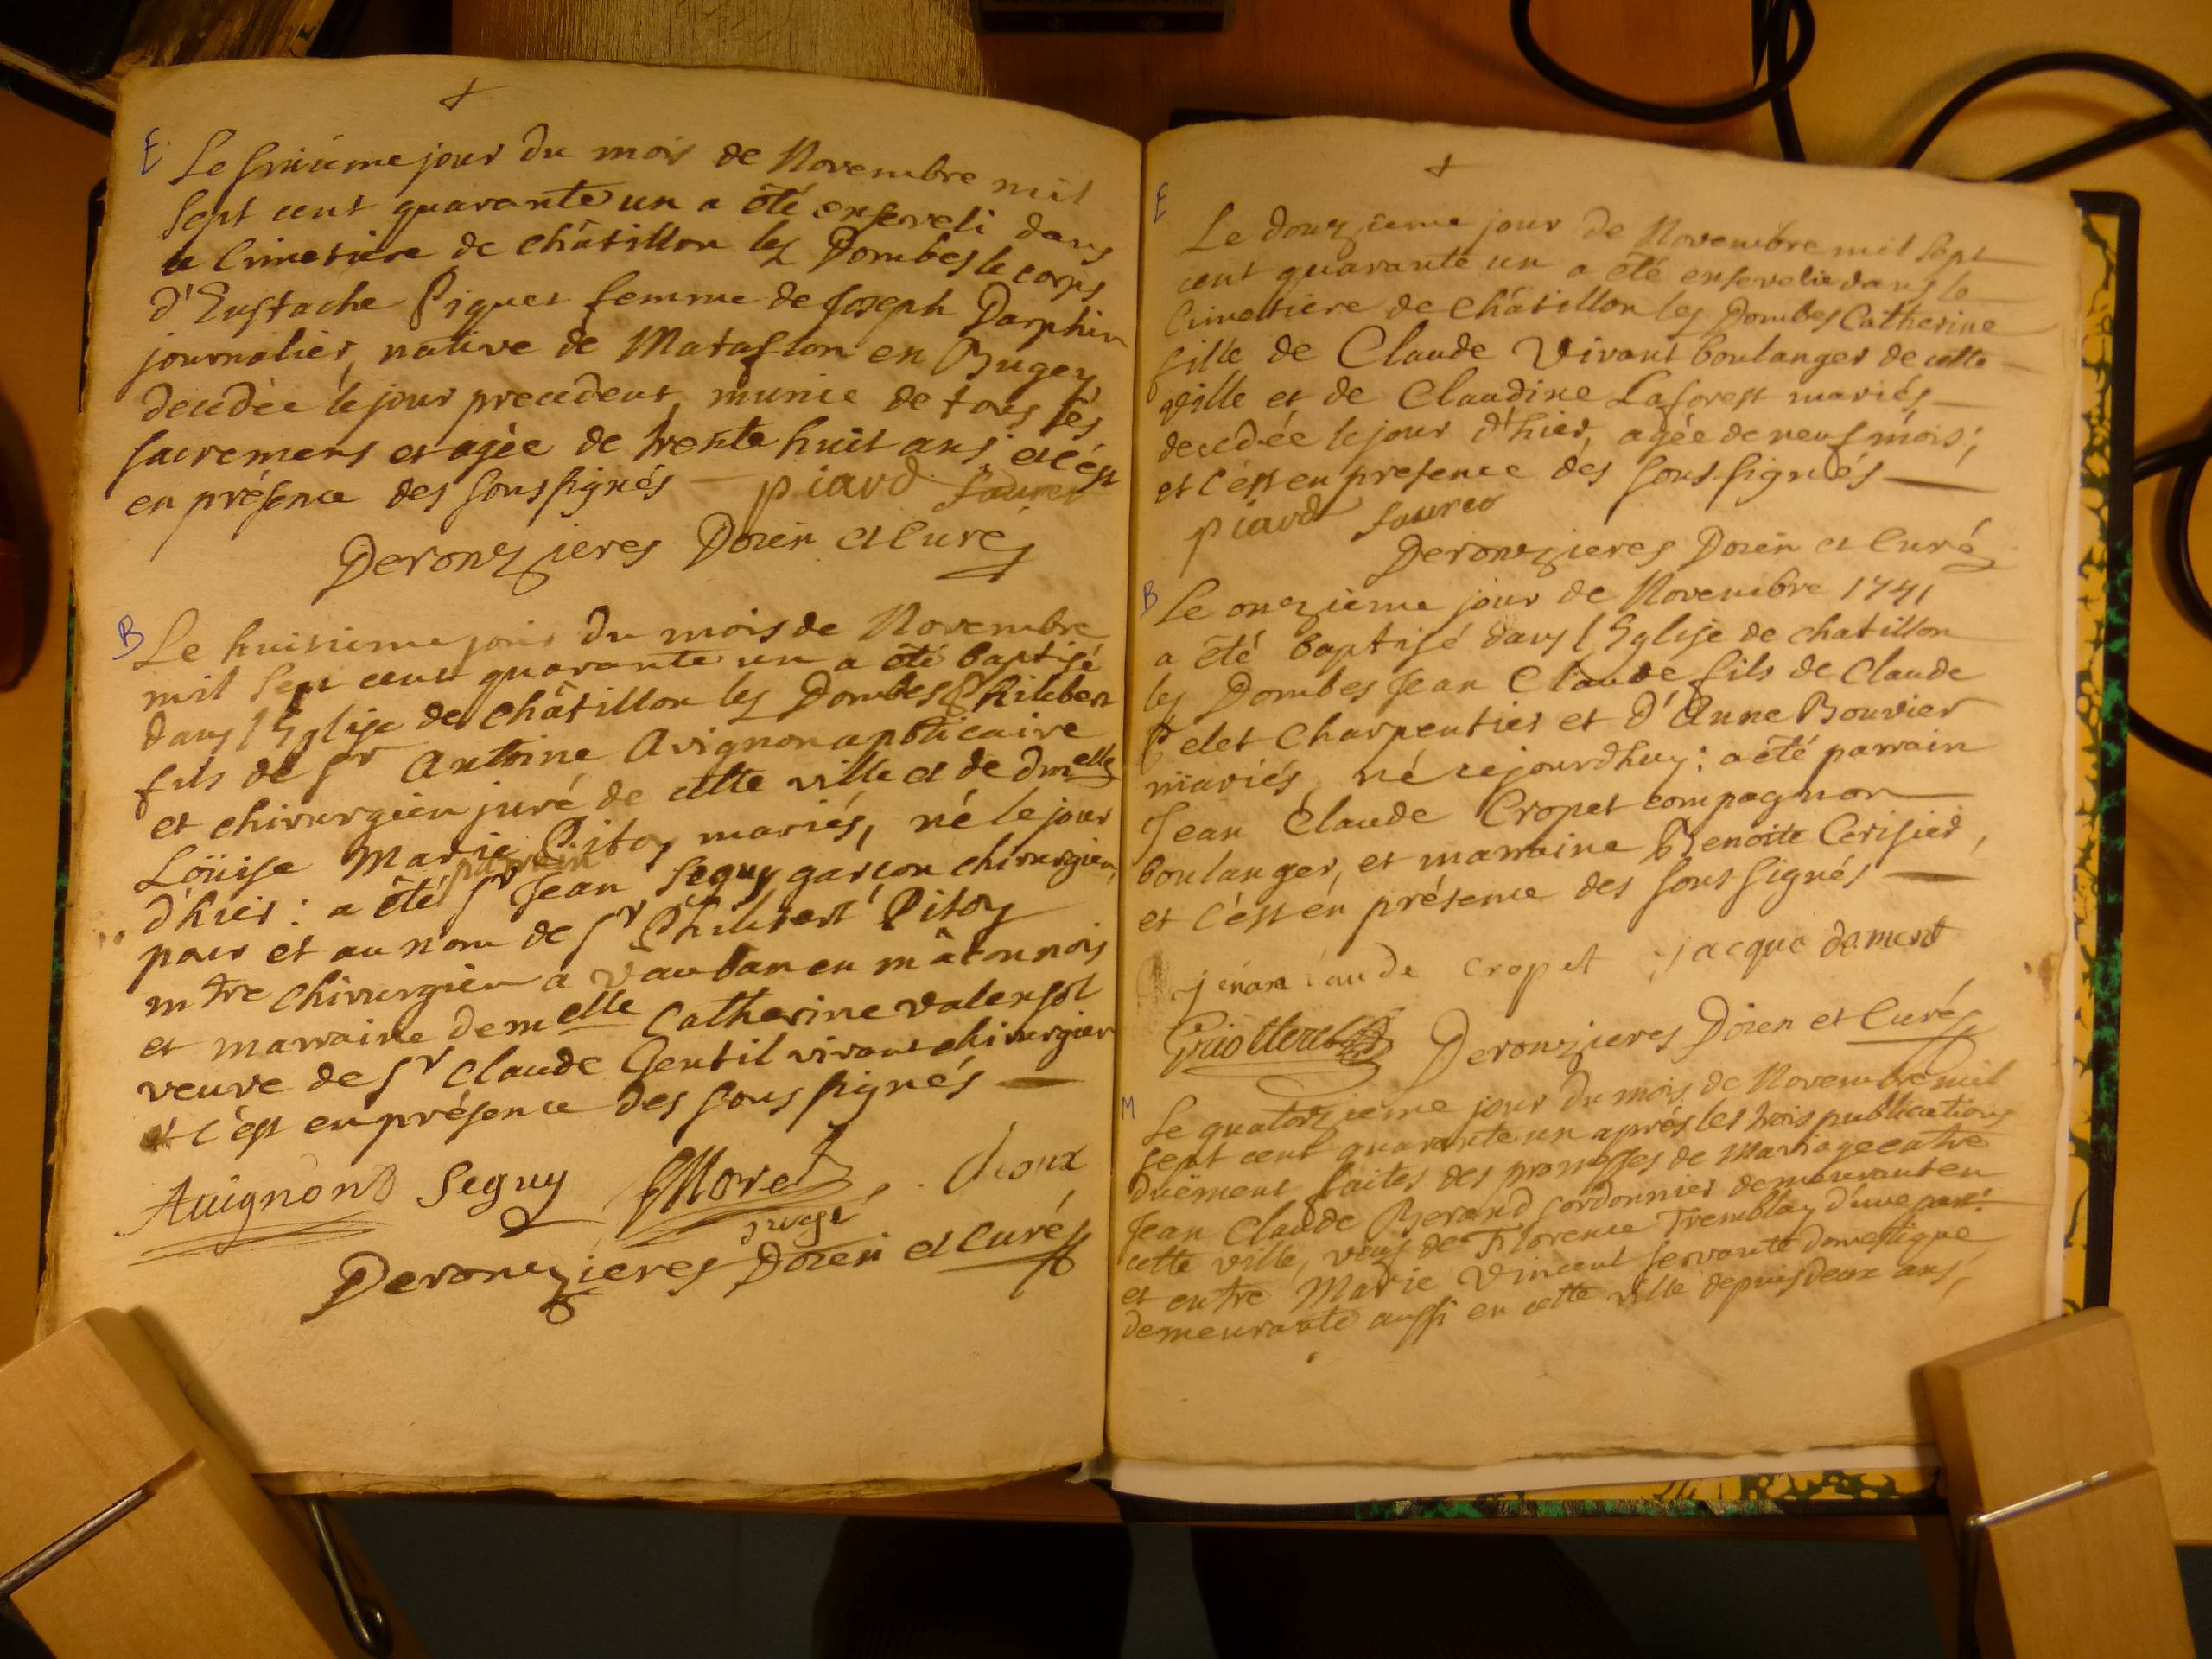 E
Le sixieme jour du mois de Novembre mil
sept cent quarante un a êté enseveli dans
le Cimetiere de châtillon les Dombes le corps
d'Eustache Piquet femme de Joseph Darphin
journalier, native de Mataflon en Bugey,
decedée le jour precedent, munie de tous les
sacremens et agée de trente huit ans, et c'est
en présence des soussignés piard faurer
Derouzieres Doien et Curé
B
Le huitieme jour du mois de Novembre
mil sept cent quarante un a êté baptisé
dans l'Eglise de châtillon les Dombes Philibert
fils de Sr Antoine Avignon apoticaire
et chirurgien juré de cette ville et de dmelle
Loüise Marie Pitoy mariés, né le jour
d'hier : a êté parrain Sr Jean Seguy garçon chirurgien,
pour et au nom de Sr Philibert Pitoy
mtre chirurgien a Vauban en mâconnois
et marraine demelle Catherine Valensol
veuve de Sr Claude Gentil vivant chirurgien
et c'est en présence des sous signés
Auignon Seguy Moret juge
Derouzieres Doien et Curé
E
Le douzieme jour de Novembre mil sept
cent quarante un a êté ensevelie dans le
Cimettiere de châtillon les Dombes Catherine
fille de Claude Vivant boulanger de cette
ville et de Claudine Laforest mariés
decedée le jour d'hier, agée de neuf mois;
et c'est en presence des sous signés
piard faurer
Derouzieres Doien et Curé
B
Le onzieme jour de Novembre 1741
a été baptisé dans l'Eglise de chatillon
les Dombes Jean Claude fils de Claude
Pelet Charpentier et d'Anne Bouvier
mariés, né cejourdhuy : a été parrain
Jean Claude Cropet compagnon
boulanger, et marraine Benoite Cerisier,
et c'est en présence des sous signés
jean laude cropet jacque dement
Derouzieres Doien et Curé
M
Le quatorzieme jour du mois de Novembre mil
sept cent quarante un aprés les trois publications
duëment faites des promesses de Mariage entre
Jean Claude Berand cordonnier demeurant en
cette ville, veuf de Florence Tremblay d'une part:
et entre Marie Vincent servante domestique
demeurante aussi en cette ville depuis deux ans,